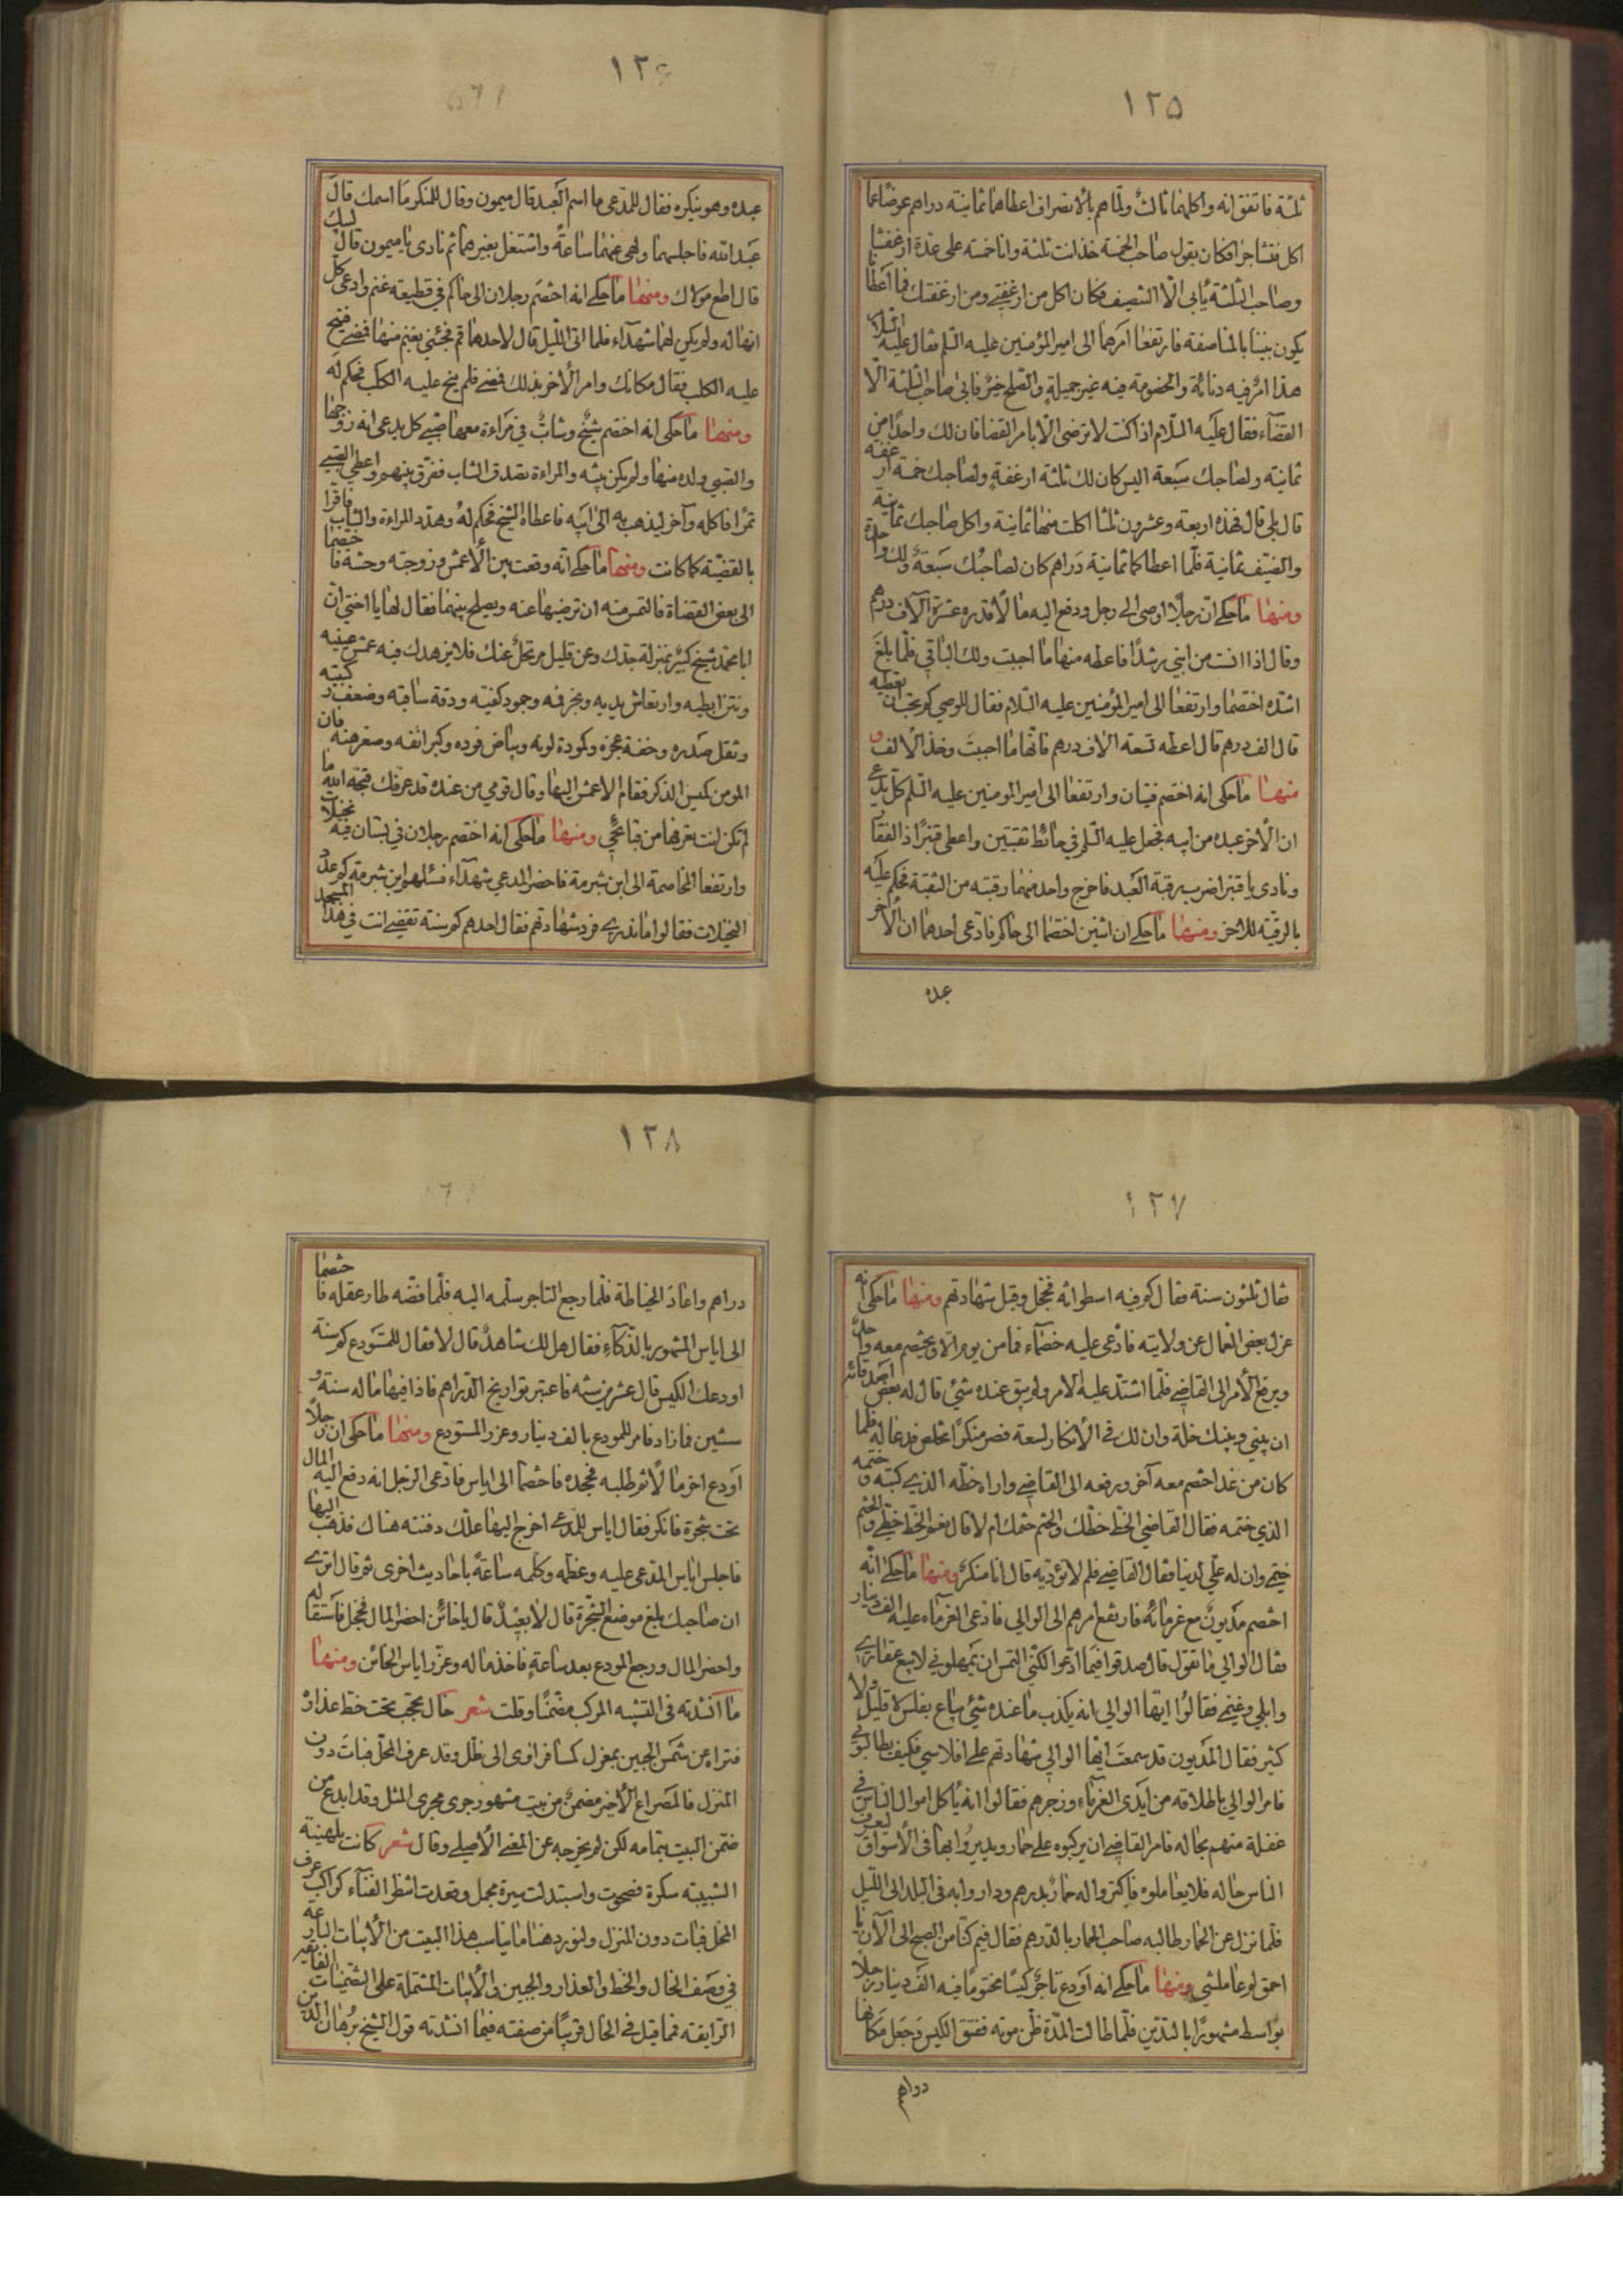 ١٢٥
ثلثة فاتفق انه واكلهما ثالث ولما هم بالانصراف اعطاهما ثمانية دراهم عوضا عما
اكل فتشاجرا فكان يقول صاحب الخمسة خذ انت ثلثة وانا خمسة على عدة ارغفتنا
وصاحب الثلثة يأبى الا التنصيف فكان اكل من ارغفتي ومن ارغفتك فما اعطانا
يكون بيننا بالمناصفة فارتفعا امرهما الى امير المؤمنين عليه السلم فقال عليه السلام
هذا امر فيه دنائة والخصومة فيه غير جميلة والصلح خير فابى صاحب الثلثة الا
القضآء فقال عليه السلام اذا كنت لا ترضى الا بامر القضا فان لك واحدا من
ثمانية ولصاحبك سبعة اليس كان لك ثلثة ارغفة ولصاحبك خمسة ارغفة
قال بلى قال فهذه اربعة وعشرون ثلثا اكلت منها ثمانية واكل صاحبك ثمانية
والضيف ثمانية فلما اعطاكما ثمانية دراهم كان لصاحبك سبعة ولك واحدة
ومنها ما حكي ان رجلا اوصى الى رجل ودفع اليه مالا قدره عشرة آلاف درهم
وقال اذا انست من ابني رشدا فاعطه منها ما احببت ولك الباقي فلما بلغ
اشده اختصما وارتفعا الى امير المؤمنين عليه السلام فقال للوصي كم تحب ان تعطيه
قال الف درهم قال اعطه تسعة الاف درهم فانها ما احببت وخذ الالف و
منها ما حكي انه اختصم فتيان وارتفعا الى امير المومنين عليه السلم كل يدعي
ان الاخر عبده من ابيه فجعل عليه السلم في حائط ثقبتين واعطى قنبرا ذا الفقار
ونادى يا قنبر اضرب رقبة العبد فاخرج واحد منهما رقبته من الثقبة فحكم عليه
بالرقية للاخر ومنها ما حكي ان اثنين اختصما الى حاكم فادعى احدهما ان الآخر
عبده
١٢۶
عبده وهو ينكره فقال للمدعي ما اسم العبد قال ميمون وقال للمنكر ما اسمك قال
عبد الله فاجلسهما ولهى عنهما ساعة واشتغل بغيرهما ثم نادى يا ميمون قال لبيك
قال اطع مولاك ومنها ما حكي انه اختصم رجلان الى حاكم في قطيعة غنم وادعى كل
انها له ولم يكن لهما شهدآء فلما اتى الليل قال لاحدهما قم فجئني بغنم منها فمضى فنبح
عليه الكلب فقال مكانك وامر الآخر بذلك فمضى فلم ينبح عليه الكلب فحكم له
ومنها ما حكى انه اختصم شيخ وشاب في مراءة معها صبي كل يدعى انه زوجها
والصبي ولده منها ولم يكن بينة والمراءة تصدق الشاب ففرق بينهم واعطى الصبي
تمرا فاكله وآخر ليذهب به الى ابيه فاعطاه الشيخ فحكم له وهدد المراءة والشاب فاقرا
بالقضية كما كانت ومنها ما حكي انه وقعت بين الاعمش وزوجته وحشة فاختصما
الى بعض القضاة فالتمس منه ان ترضيها عنه ويصلح بينهما فقال لها يا اختي ان
ابا محمد شيخ كبير بمنزلة جدك وعن قليل مرتحل عنك فلا يزهدك فيه عمش عينيه
ونتن ابطيه وارتعاش يديه وبخر فيه وجمود كفيه ودقة ساقيه وضعف ركبتيه
وثقل صدره وخفة عجزه وكمودة لونه وبياض فوده وكبر انفه وصغر هنه فان
المومن كيس الذكر فقام الاعمش اليها وقال قومي من عنده قد عرفك قبحه الله ما
لم تكن انت تعرفها من قبايحي ومنها ما حكى انه اختصم رجلان في بستان فيه نخيلا
وارتفعا المخاصمة الى ابن شبرمة فاحضر المدعي شهدآء فسئلهم ابن شبرمة كم عدد
النخيلات فقالوا ما ندري فرد شهادتهم فقال احدهم كم سنة تقضي انت في هذا المسجد
١٢٧
فقال ثلثون سنة فقال كم فيه اسطوانه فخجل وقبل شهادتهم ومنها ما حكى انه
عزل بعض العمال عن ولايته فادعى عليه خصمآء فما من يوم الا ويختصم معه واحد
ويرفع الامر الى القاضي فلما اشتد عليه الامر ولم يبق عنده شئ قال له بعض اصدقائه
ان بيني وبينك خلة وان لك في الانكار لسعة فصر منكرا تخلص فدعا له فلما
كان من غد اختصم معه آخر ورفعه الى القاضي واراه خطه الذي كتبه وختمه
الذي ختمه فقال القاضي الخط خطك والختم ختمك ام لا قال نعم الخط خطي والختم
ختمي وان له علي لدينا فقال القاضي فلم لا تؤديه قال انا منكر ومنها ما حكي انه
اختصم مديون مع غرمائه فارتفع امرهم الى الوالي فادعى الغرماء عليه الف دينار
فقال الوالي ما تقول قال صدقوا فيما ادعوا لكني التمس ان يمهلوني لابيع عقاري
وابلي وغنمي فقالوا ايها الوالي انه يكذب ما عنده شئ يباع بفلس لا قليل ولا
كثير فقال المديون قد سمعت ايها الوالي شهادتهم على افلاسي فكيف يطالبوني
فامر الوالي باطلاقه من ايدى الغرمآء وزجرهم فقالوا انه يأكل اموال الناس في
غفلة منهم بحاله فامر القاضي ان يركبوه على حمار ويديروا بها في الاسواق ليعرف
الناس حاله فلا يعاملوه فاكتروا له حمارا بدرهم وداروا به في البلد الى الليل
فلما نزل عن الحمار طالبه صاحب الحمار بالدرهم فقال فيم كنا من الصبح الى الآن يا
احمق لو عاملتني ومنها ما حكي انه اودع تاجر كيسا مختوما فيه الف دينار رجلا
بواسط مشهورا بالتدين فلما طالت المدة ظن موته ففتق الكيس وجعل مكانها
دراهم
١٢٨
دراهم واعاد الخياطة فلما رجع التاجر سلمه اليه فلما فضه طار عقله فاختصما
الى اياس المشهور بالذكآء فقال هل لك شاهد قال لا فقال للمستودع كم سنة
اودعك الكيس قال عشرين سنة فاعتبر تواريخ الدراهم فاذا فيها ماله سنة و
سنتين فما زاد فامر للمودع بالف دينار وعزر المستودع ومنها ما حكى ان رجلا
اودع اخر مالا ثم طلبه فجحده فاختصما الى اياس فادعى الرجل انه دفع اليه المال
تحت شجرة فانكر فقال اياس للمدعي اخرج اليها علك دفنته هناك فذهب اليها
فاجلس اياس المدعى عليه وعظمه وكلمه ساعة باحاديث اخرى ثم قال اترى
ان صاحبك بلغ موضع الشجرة قال لا بعيد قال يا خائن احضر المال فخجل فاستقاله
واحضر المال ورجع المودع بعد ساعة فاخذ ماله وعزر اياس الخائن ومنها
ما انشدته في التشبيه المركب مضمنا وقلت شعر خال تحجب تحت خط عذاره
فتراه عن شمس الجبين بمعزل كمسافر اوى الى ظل وقد عرف المحل فبات دون
المنزل فالمصراع الاخير مضمن من بيت مشهور جرى مجرى المثل وقد ابدع من
ضمن البيت بتمامه لكن لم يخرجه عن المعنى الاصلي وقال شعر كانت بلهنية
الشبيبة سكرة فصحوت واستبدلت سيرة مجمل وقعدت انتظر الفنآء كراكب عرف
المحل فبات دون المنزل ولنورد هنا ما يناسب هذا البيت من الابيات البارعة
في وصف الخال والخط والعذار والجبين والابيات المشتملة على التضمينات
الرايقة فما قيل في الخال قريبا من صفته فيما انشدته قول الشيخ برهان الدين